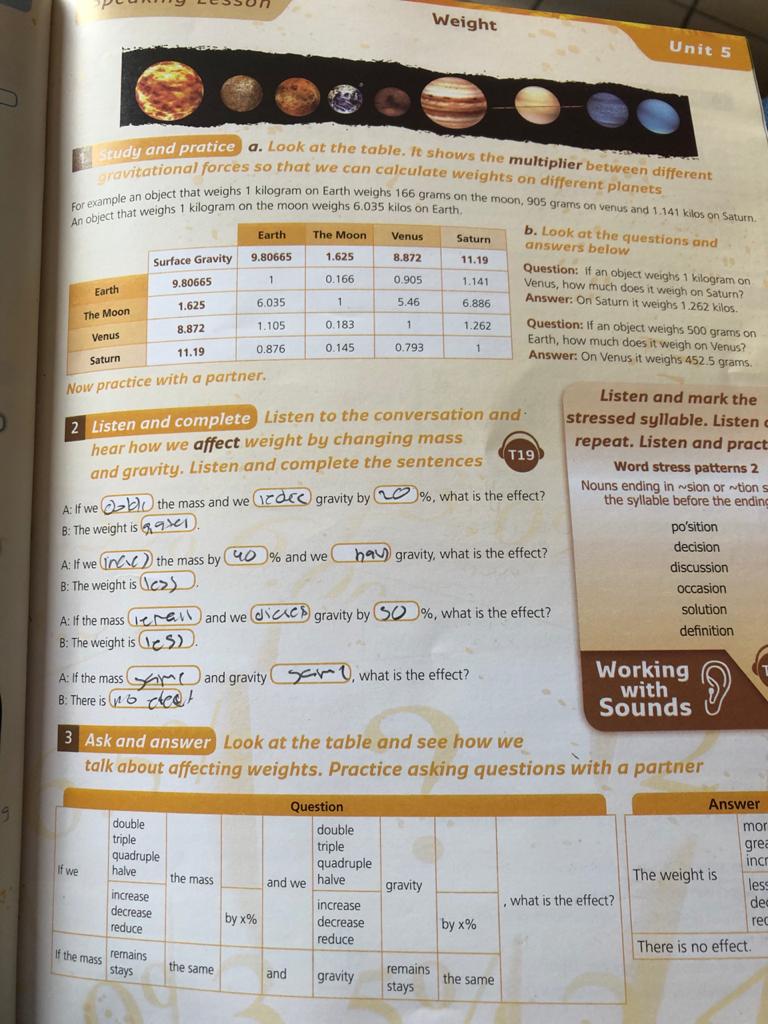 Speaking Lesson
Weight
Unit 5
1 Study and pratice a. Look at the table. It shows the multiplier between different
gravitational forces so that we can calculate weights on different planets
For example an object that weighs 1 kilogram on Earth weighs 166 grams on the moon, 905 grams on venus and 1.141 kilos on Saturn.
An object that weighs 1 kilogram on the moon weighs 6.035 kilos on Earth.
Earth The Moon Venus Saturn
Surface Gravity 9.80665 1.625 8.872 11.19
Earth 9.80665 1 0.166 0.905 1.141
The Moon 1.625 6.035 1 5.46 6.886
Venus 8.872 1.105 0.183 1 1.262
Saturn 11.19 0.876 0.145 0.793 1
b. Look at the questions and
answers below
Question: If an object weighs 1 kilogram on
Venus, how much does it weigh on Saturn?
Answer: On Saturn it weighs 1.262 kilos.
Question: If an object weighs 500 grams on
Earth, how much does it weigh on Venus?
Answer: On Venus it weighs 452.5 grams.
Now practice with a partner.
2 Listen and complete Listen to the conversation and
hear how we affect weight by changing mass
and gravity. Listen and complete the sentences
T19
A: If we the mass and we gravity by 20 %, what is the effect?
B: The weight is .
A: If we the mass by 40 % and we gravity, what is the effect?
B: The weight is less .
A: If the mass and we gravity by 50 %, what is the effect?
B: The weight is less .
A: If the mass same and gravity same , what is the effect?
B: There is no
Listen and mark the
stressed syllable. Listen
repeat. Listen and pract
Word stress patterns 2
Nouns ending in ~sion or ~tion s
the syllable before the ending
po'sition
decision
discussion
occasion
solution
definition
Working
with
Sounds
3 Ask and answer Look at the table and see how we
talk about affecting weights. Practice asking questions with a partner
Question
If we
double
triple
quadruple
halve
increase
decrease
reduce
the mass
by x%
and we
double
triple
quadruple
halve
increase
decrease
reduce
gravity
by x%
, what is the effect?
If the mass
remains
stays
the same
and
gravity
remains
stays
the same
Answer
The weight is
mor
grea
incr
less
dec
red
There is no effect.